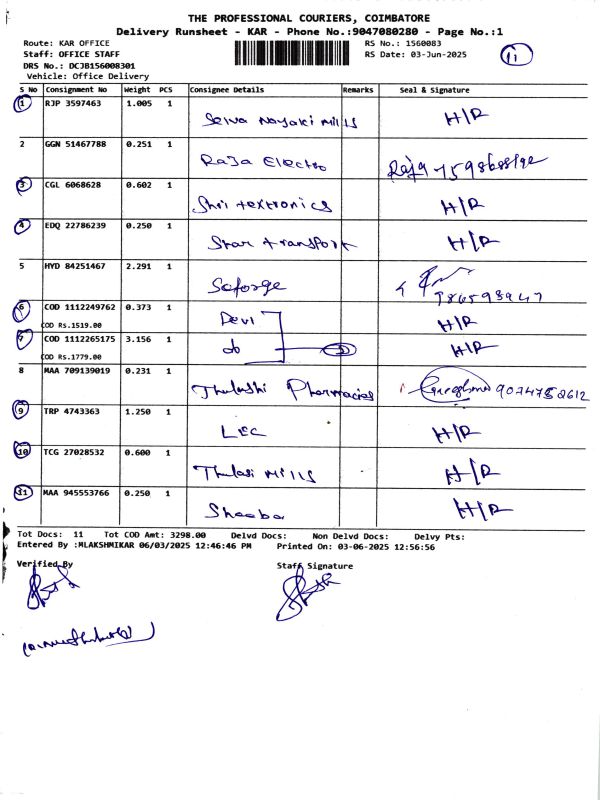 THE PROFESSIONAL COURIERS, COIMBATORE
Delivery Runsheet - KAR - Phone No.:9047080280 - Page No.:1
Route: KAR OFFICE RS No.: 1560083 11
Staff: OFFICE STAFF RS Date: 03-Jun-2025
DRS No.: DCJB156008301
Vehicle: Office Delivery
S No Consignment No Weight PCS Consignee Details Remarks Seal & Signature
1 RJP 3597463 1.005 1 Selva Nayaki Mills H/R
2 GGN 51467788 0.251 1 Raja Electro Raja
3 CGL 6068628 0.602 1 Shri textronics H/R
4 EDQ 22786239 0.250 1 Star transport H/R
5 HYD 84251467 2.291 1 Saforge
6 COD 1112249762 0.373 1 Devi H/R
COD Rs.1519.00
7 COD 1112265175 3.156 1 do H/R
COD Rs.1779.00
8 MAA 709139019 0.231 1 Thulashi Pharmacies
9 TRP 4743363 1.250 1 LEC H/R
10 TCG 27028532 0.600 1 Thulasi Mills H/R
11 MAA 945553766 0.250 1 Sheeba H/R
Tot Docs: 11 Tot COD Amt: 3298.00 Delvd Docs: Non Delvd Docs: Delvy Pts:
Entered By :MLAKSHMIKAR 06/03/2025 12:46:46 PM Printed On: 03-06-2025 12:56:56
Verified By Staff Signature